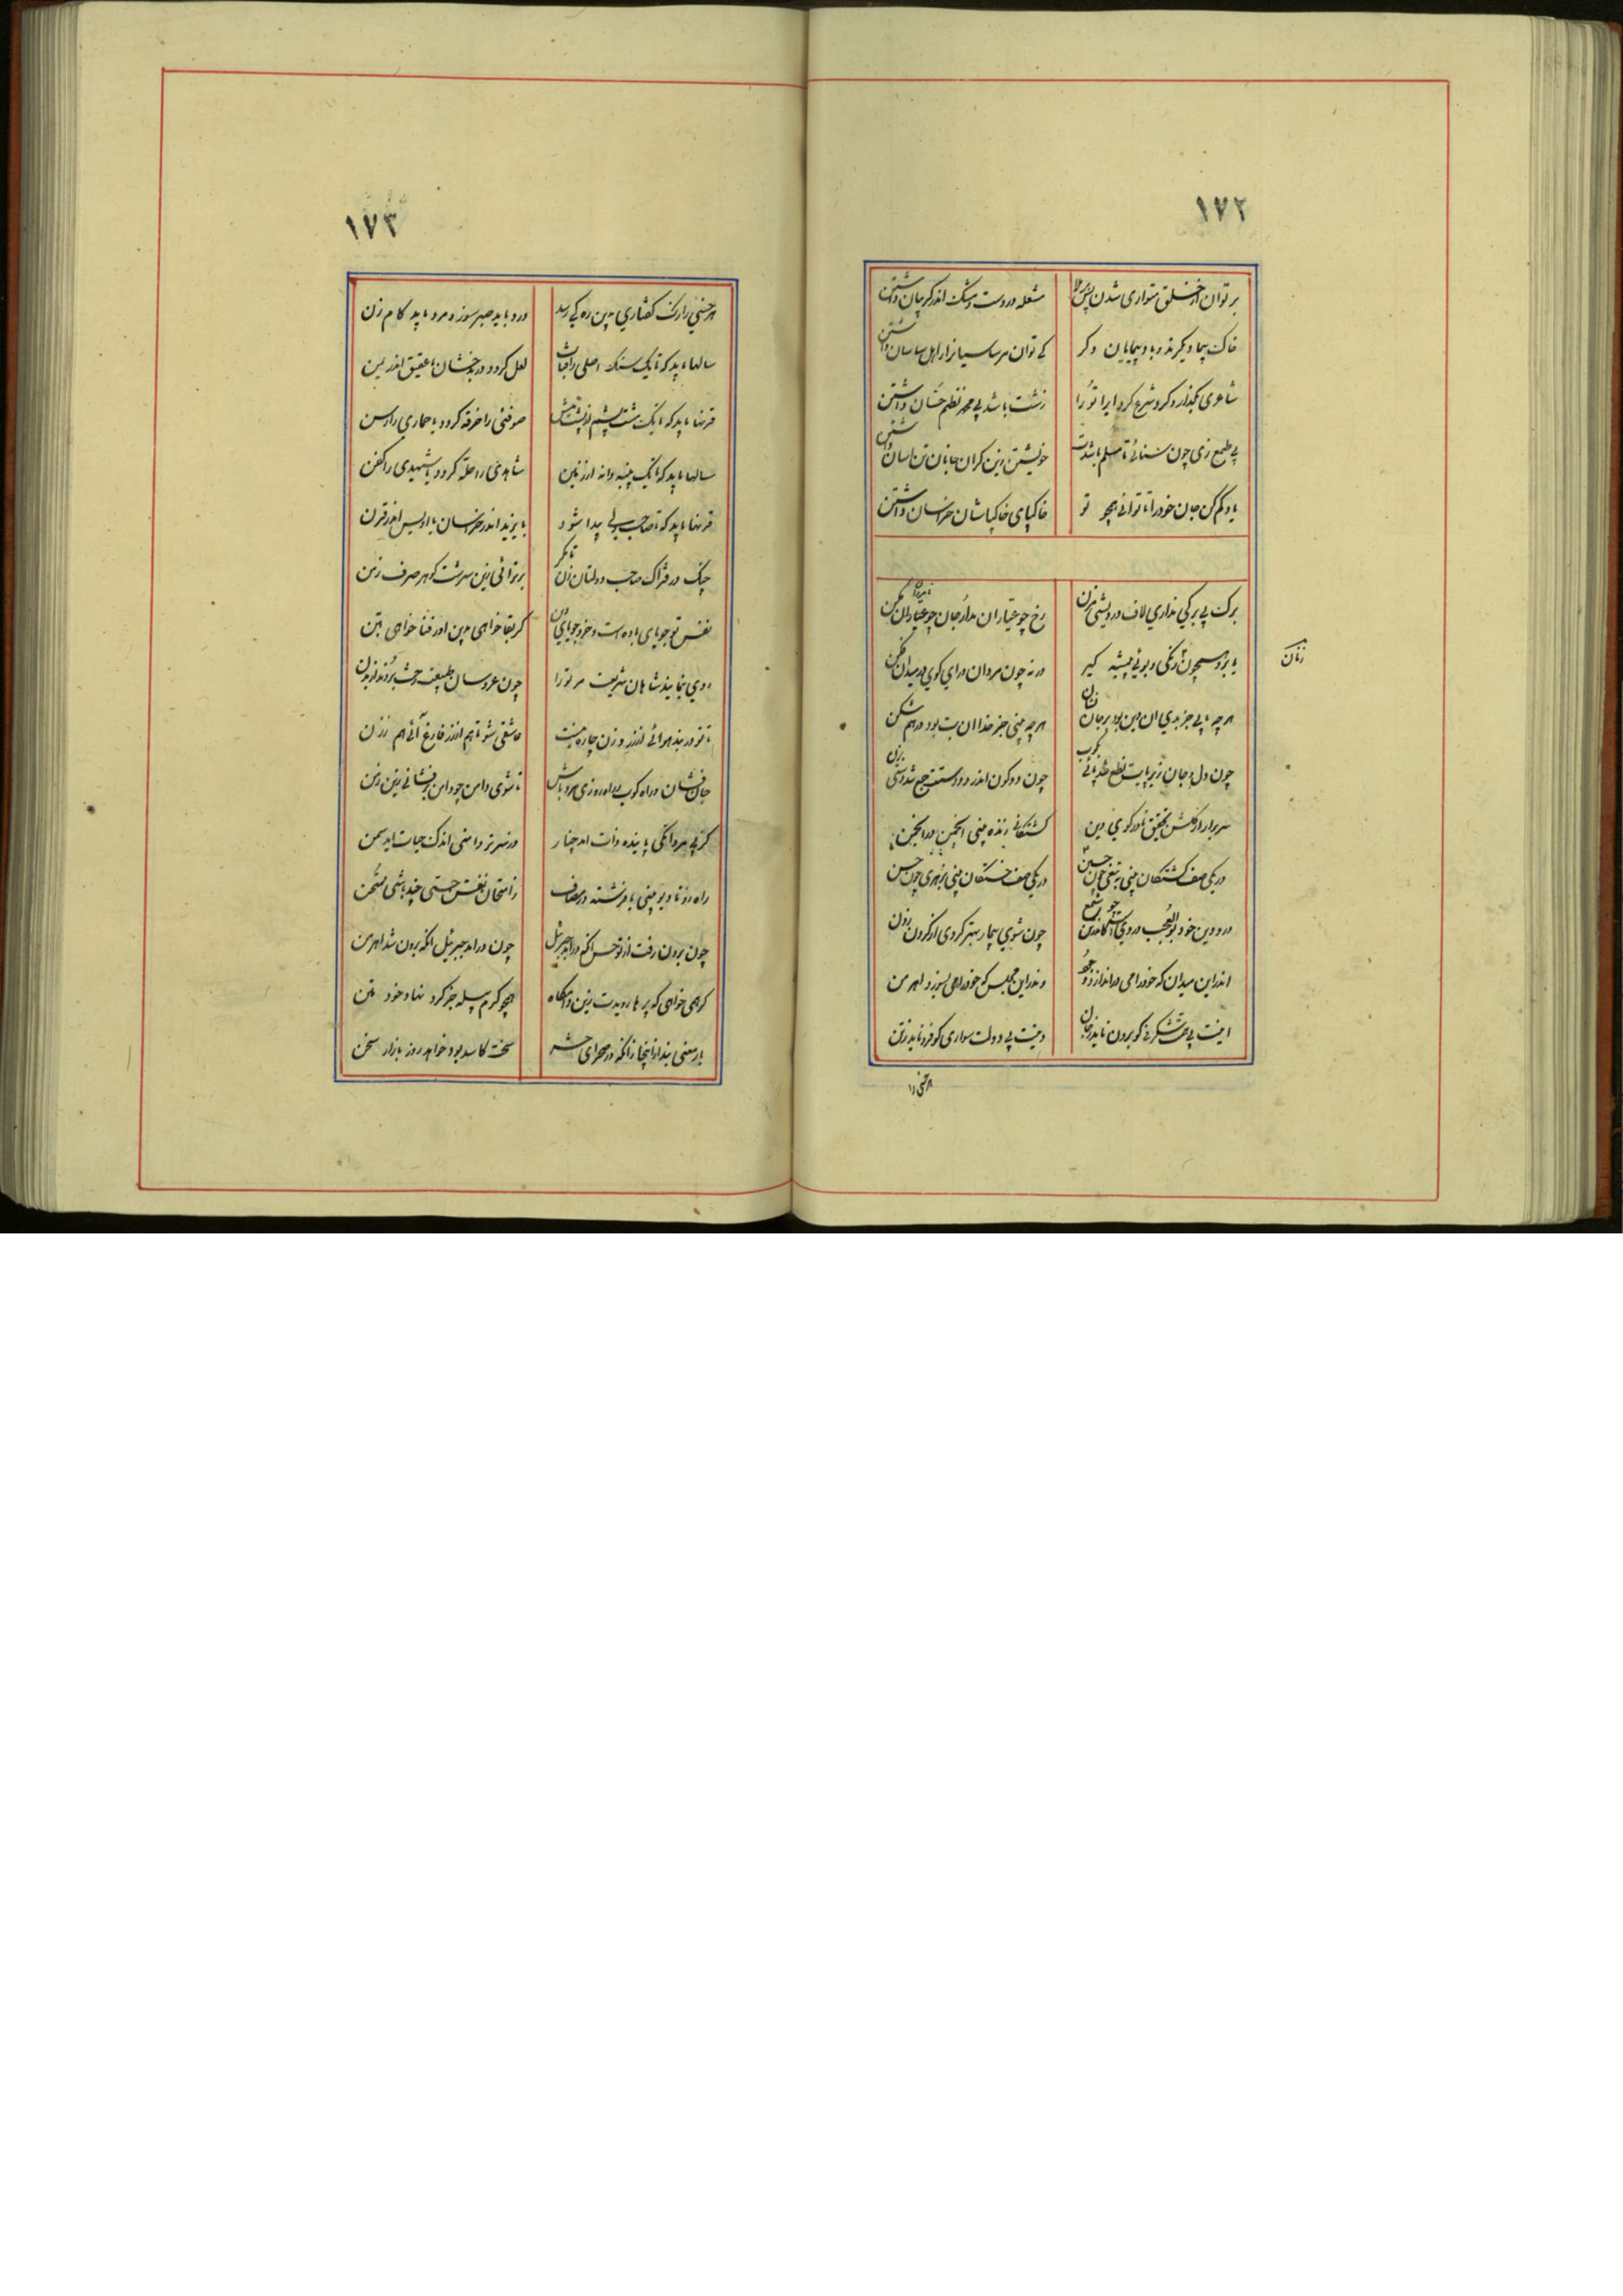 ۱۷۲
بر توان از خلق متواری شدن پس بر ملا مشعله در دست و مشک اندر گریبان داشتن
خاک پیما دیگرند و باد پیمایان دگر کے توان مر ساسیانرا ز اهل ساسان داشتن
شاعری بگذار و گرد شرع گرد ایرا تو را زشت باشد بی محمد نظم حسان داشتن
بی طمع زی چون سنائی تا مسلم باشدت خویشتن زین گران جانان تن اسان داشتن
یاد کم کن جان خود را تا توانی همچو تو خاکپای خاکپاشان خراسان داشتن
برک بی برکی نداری لاف درویشی مزن رخ چو عیاران مدار جان چو نامردان مکن
یا برو همچون زنان رنگی و بوئی پیشه گیر ورنه چون مردان درای گوی در میدان فکن
زنان
هر چه یابی جز هدی ان دین بود بر جان نشان هر چه بینی جز خدا ان بت بود در هم شکن
چون دل و جان زیر پایت نطع شد پائی بکوب چون دو کون اندر دو دستت جمع شد دستی بزن
سر برار از گلشن تحقیق تا در کوی دین کشتگان زنده بینی انجمن در انجمن
در یکی صف کشتگان بینی بتیغی چون حسین در یکی صف خستگان بینی بزهری چون حسن
درد دین خود بوالعجب دردیست کاندر وی چو شمع چون شوی بیمار بهتر گردی از گردن زدن
اندر این میدان که خود را می در اندازد جهود وندر این مجلس که خود را می بسوزد اهرمن
اینت بی همت شگرفی کو برون ناید ز جان وینت بی دولت سواری کو فرو ناید ز تن
هر خسی را
۱۷۳
هر خسی را رنگ گفتاری بدین ره کی رسد درد باید صبر سوز و مرد باید گام زن
سالها باید که تا یک سنک اصلی ز افتاب لعل گردد در بدخشان یا عقیق اندر یمن
قرنها باید که تا یک مشت پشم از پشت میش صوفئی را خرقه گردد یا حماری را رسن
سالها باید که تا یک پنبه دانه اندر زمین شاهدی را حله گردد یا شهیدی را کفن
قرنها باید که تا صاحب دلی پیدا شود بایزید اندر خراسان یا اویس اندر قرن
چنک در فتراک صاحب دولتان زن تا مگر برتر ائی زین سرشت گوهر صرف زمن
نفس تو جویای باده است و خرد جویای دین گر بقا خواهی بدین اور فنا خواهی بتن
روی بنمایند شاهان شریعت مر تو را چون عروسان طبیعت رخت بربندند از بدن
تا تو در بند هوائی از زر و زن چاره نیست عاشقی شو تا هم از زر فارغ آئی هم ز زن
جان فشان و راه کوب و راد زی و مرد باش تا شوی دامن چو دامن برفشانی زین دمن
کز پی مردانگی پاینده ذات امد چنار وز پی تر دامنی اندک حیات امد سمن
راه رو تا دیو بینی با فرشته در مصاف ز امتحان نفس حسی چند باشی ممتحن
چون برون رفت از تو حرص انگه در اید جبرئیل چون در امد جبرئیل انگه برون شد اهرمن
گر همی خواهی که پرها رویدت زین دامگاه همچو کرم پیله جز گرد نهاد خود متن
بار معنی بند از اینجا زانکه در صحرای حشر سخت کاسد بود خواهد روز بازار سخن